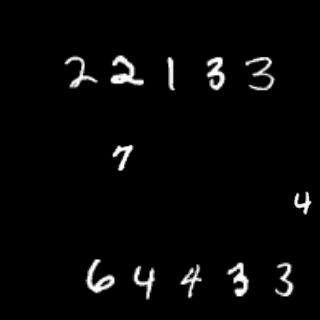 22133
7
4
64433